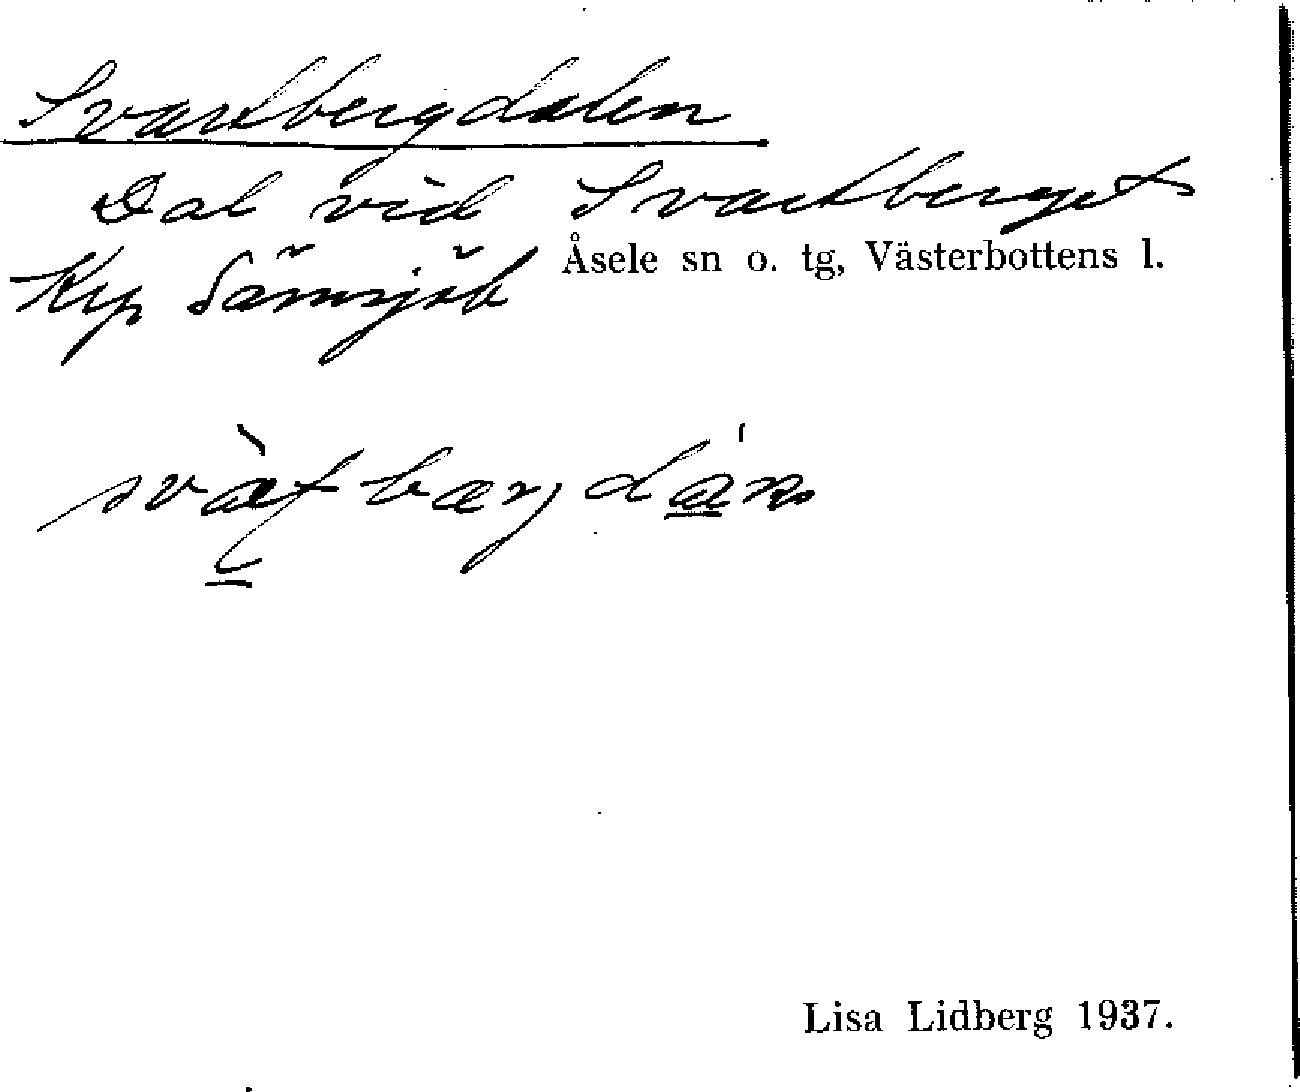 Svartbergdalen
Dal vid Svartberget
Åsele sn o. tg, Västerbottens l.
Kp
Lisa Lidberg 1937.